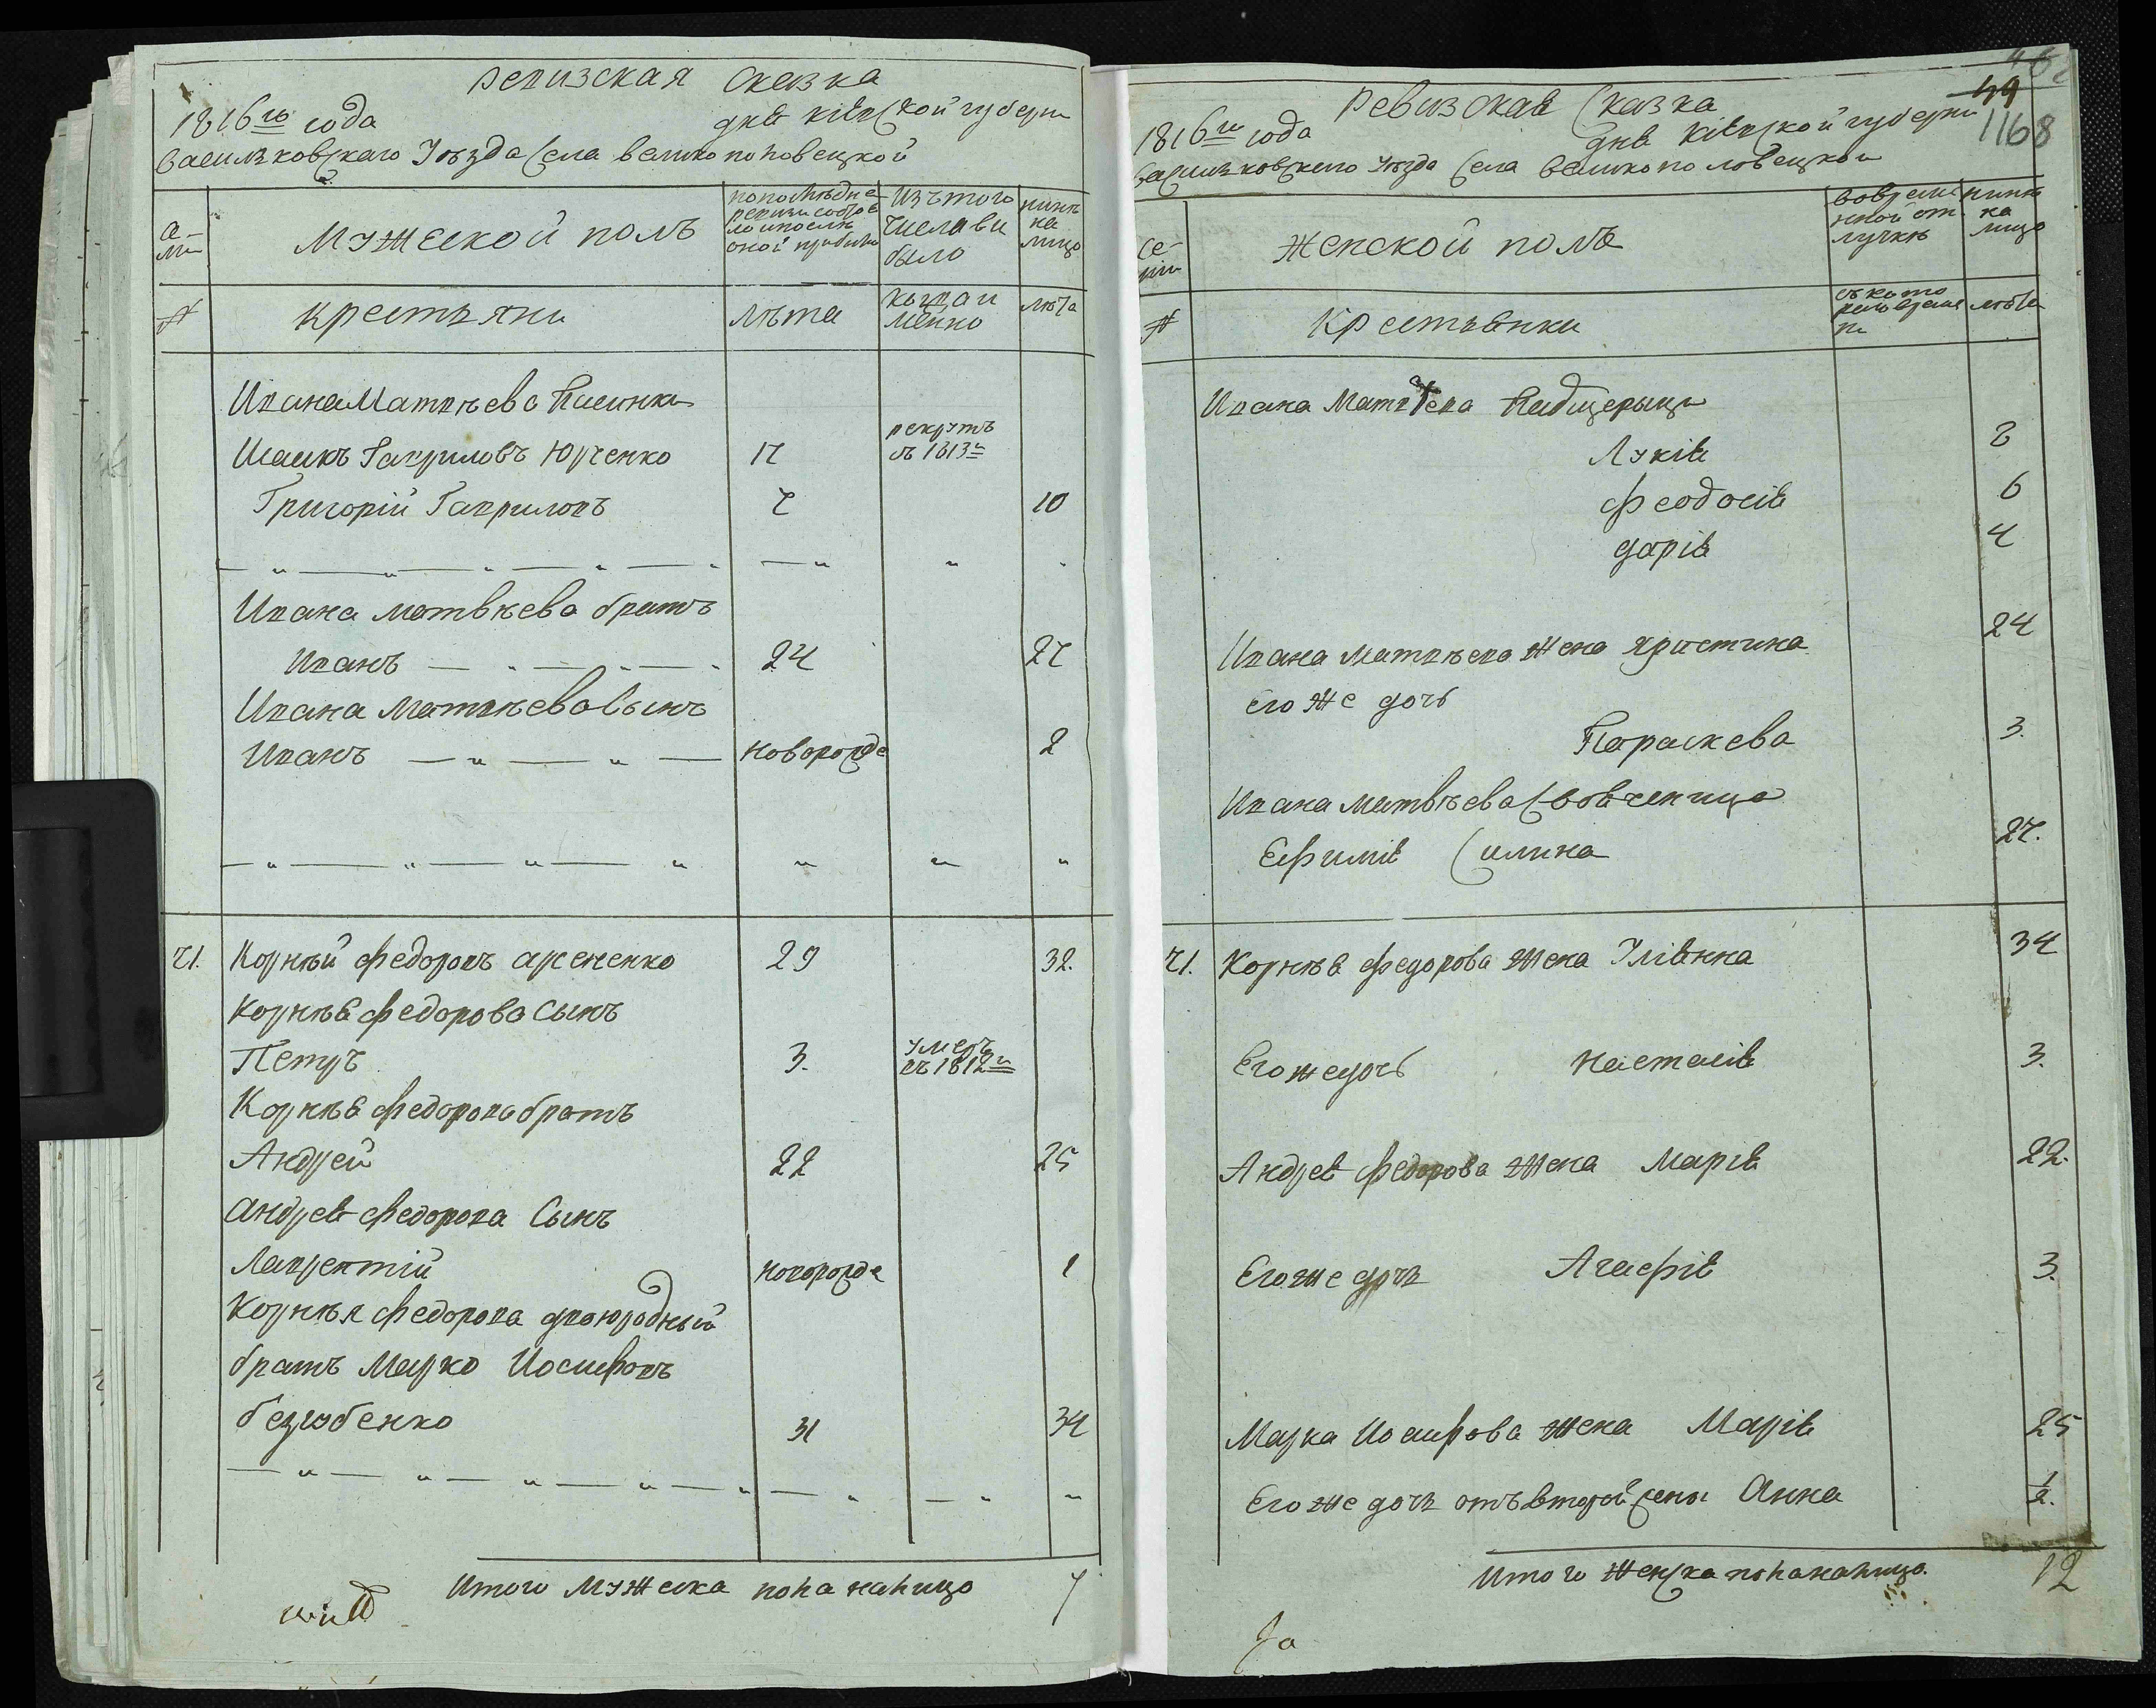 Ревизская сказка
1816го года дня Кіевской губерни
Васильковскаго Уезда села Великополовецкой
Мужеской полъ
по последне ревизи состояло и после оной прибыли
изъ того числа выбыло
ныне на лицо
№
крестьяни
лета
когда и
лета
Ивана Матвеева Пасинки
Исаикъ Гавриловъ Юрченко 17 рекрутъ въ 1813го
Григорій Гавриловъ 7 10
Ивана Матвѣева братъ
Иванъ 24 27
Ивана Матвѣева Сынъ
Иванъ новорожде 2
71. Корнѣй Федоровъ Арсененко 29 32.
Корнѣя Федорова Сынъ
Петръ 3. умеръ въ 1812го
Корнѣя Федорова братъ
Андрей 22 25
Андрея Федорова Сынъ
Лаврентій новорожде 1
Корнѣя Федорова двоюродный
братъ Марко Иосифовъ
безгубенко 31 34
Итого Мужеска пола налицо 7
Ревизская Сказка
49
1168
1816го года дня Кіевской губерни
Васильковскаго Уезда Села Великополовецкои
Женской полъ
во временной отлучкѣ
нинѣ на лицо
№
Крестьянки
съ котораго времени
лѣта
Ивана Матвѣева Падщерыци
Лукія 8
Феодосія 6
Дарія 4
Ивана Матвѣева жена Христина 24
Его же дочь
Параскева 3.
Ивана Матвѣева
Ефимія Силина 27.
71. Корнѣя Федорова жена Уліянна 34
Его же дочь Настасія 3.
Андрея Федорова жена Марія 22.
Его же дочь Агафія 3.
Марка Иосифова жена Марія 25
Его же дочь отъ второй жены Анна 1/2.
Итого Женска пола налицо. 12